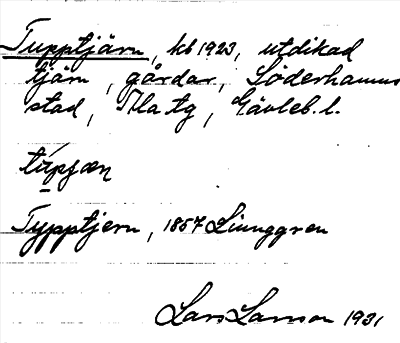 Tupptjärn, kb 1923, utdikad
tjärn, gårdar, Söderhamns
stad, Ala tg, Gävleb. l.
tùpʃæn
Typptjern, 1857 Ljunggren
Lars Larsson 1931